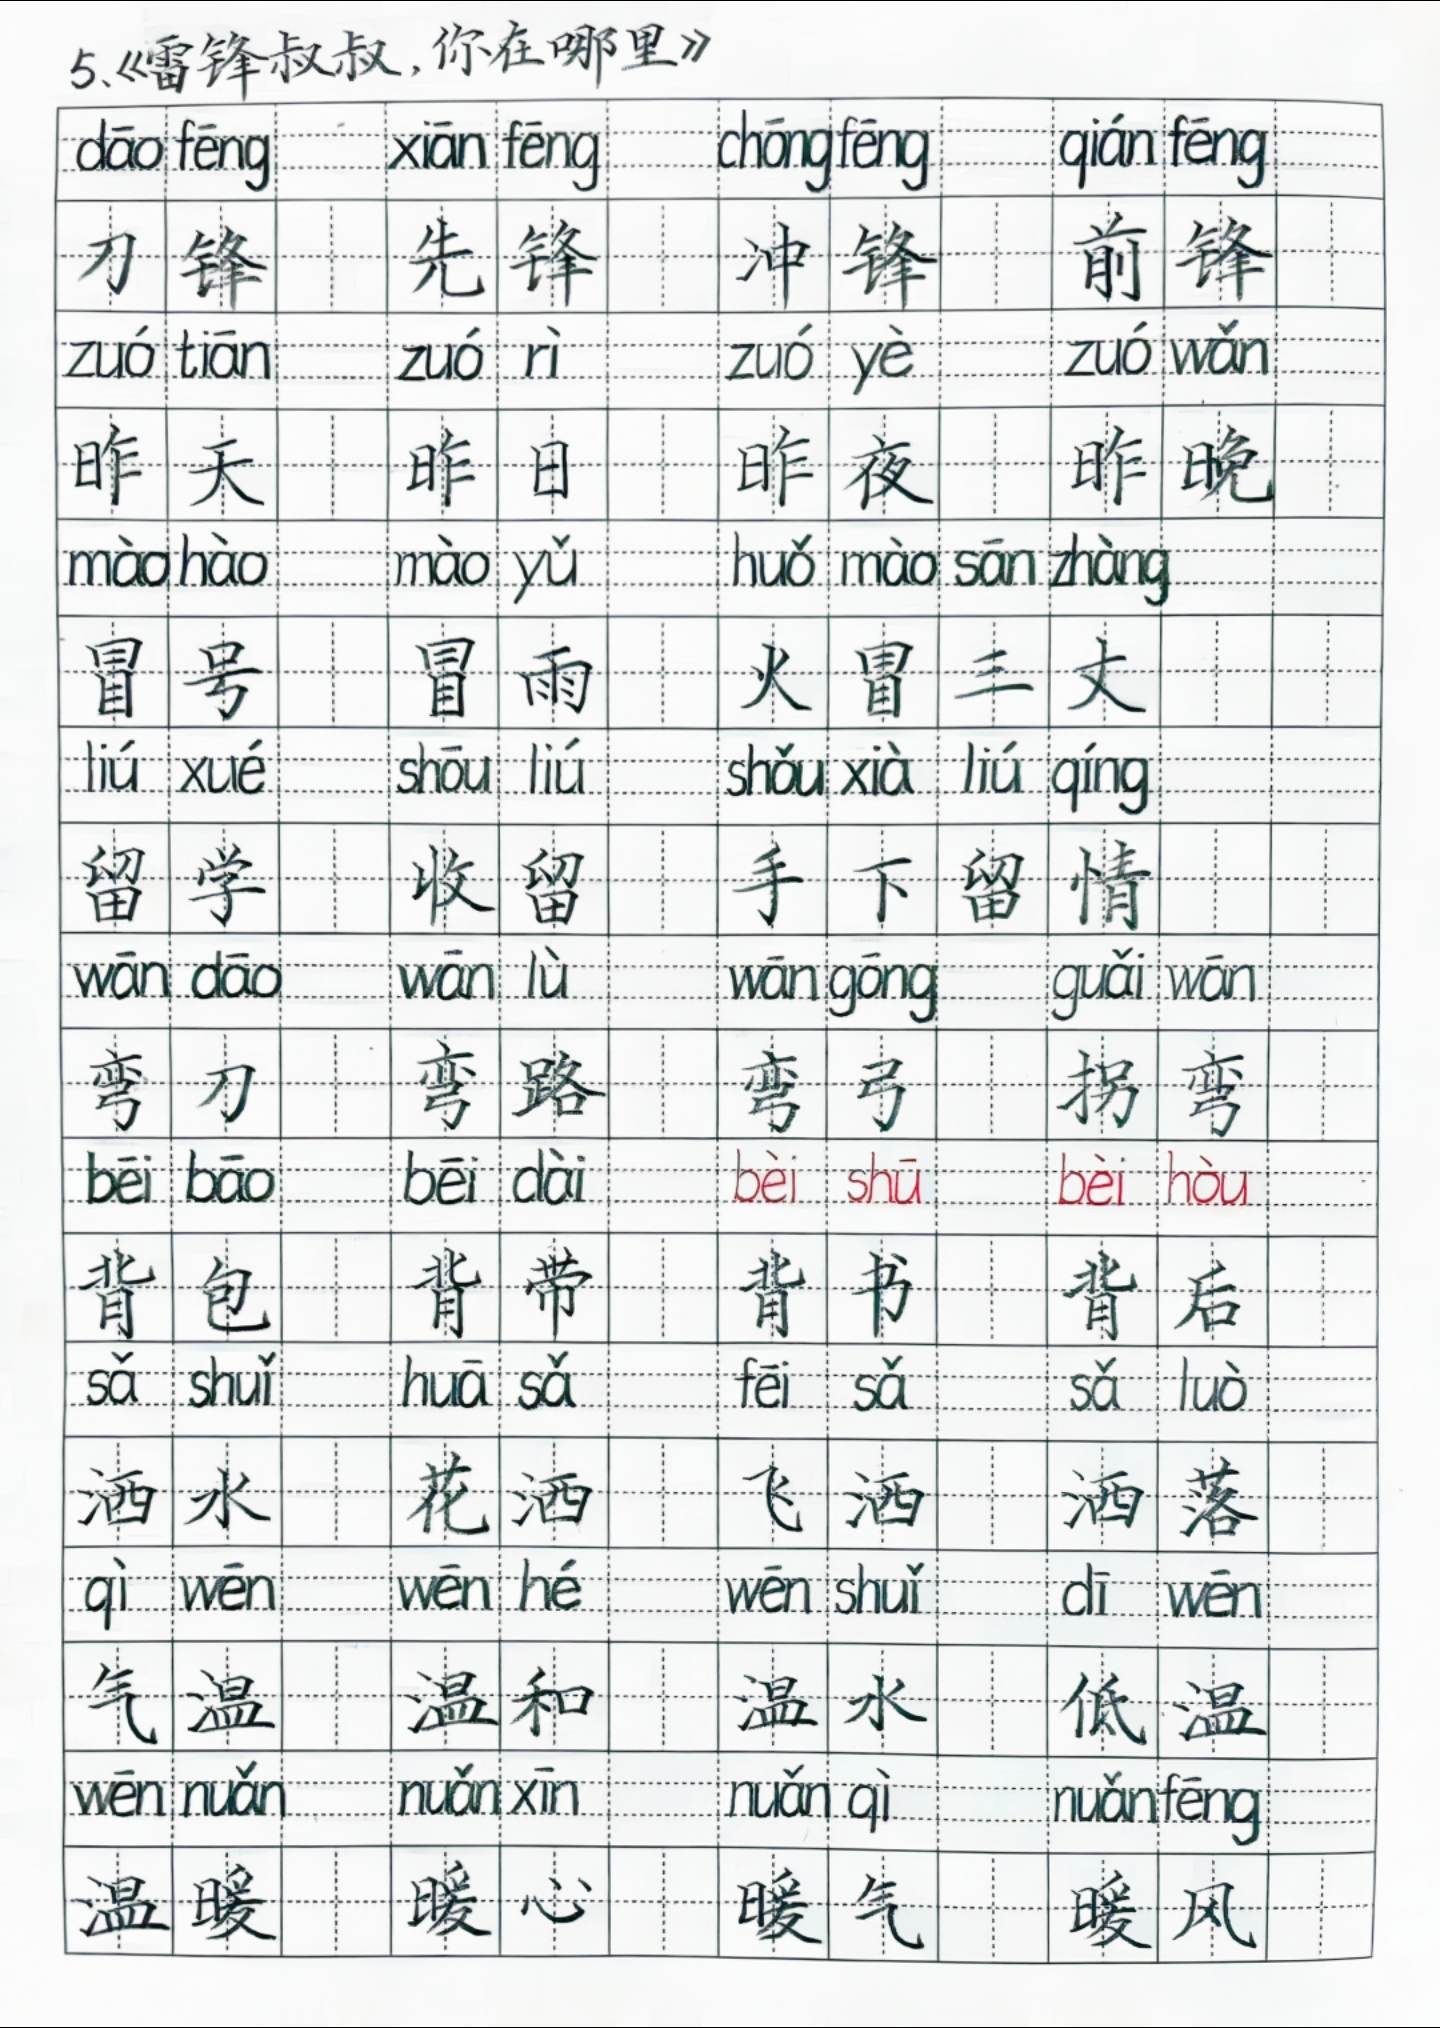 5、《雷锋叔叔，你在哪里》
dāo fēng xiān fēng chōng fēng qián fēng
刀锋 先锋 冲锋 前锋
zuó tiān zuó rì zuó yè zuó wǎn
昨天 昨日 昨夜 昨晚
mào hào mào yǔ huǒ mào sān zhàng
冒号 冒雨 火冒三丈
liú xué shōu liú shǒu xià liú qíng
留学 收留 手下留情
wān dāo wān lù wān gōng guǎi wān
弯刀 弯路 弯弓 拐弯
bēi bāo bēi dài bèi shū bèi hòu
背包 背带 背书 背后
sǎ shuǐ huā sǎ fēi sǎ sǎ luò
洒水 花洒 飞洒 洒落
qì wēn wēn hé wēn shuǐ dī wēn
气温 温和 温水 低温
wēn nuǎn nuǎn xīn nuǎn qì nuǎn fēng
温暖 暖心 暖气 暖风